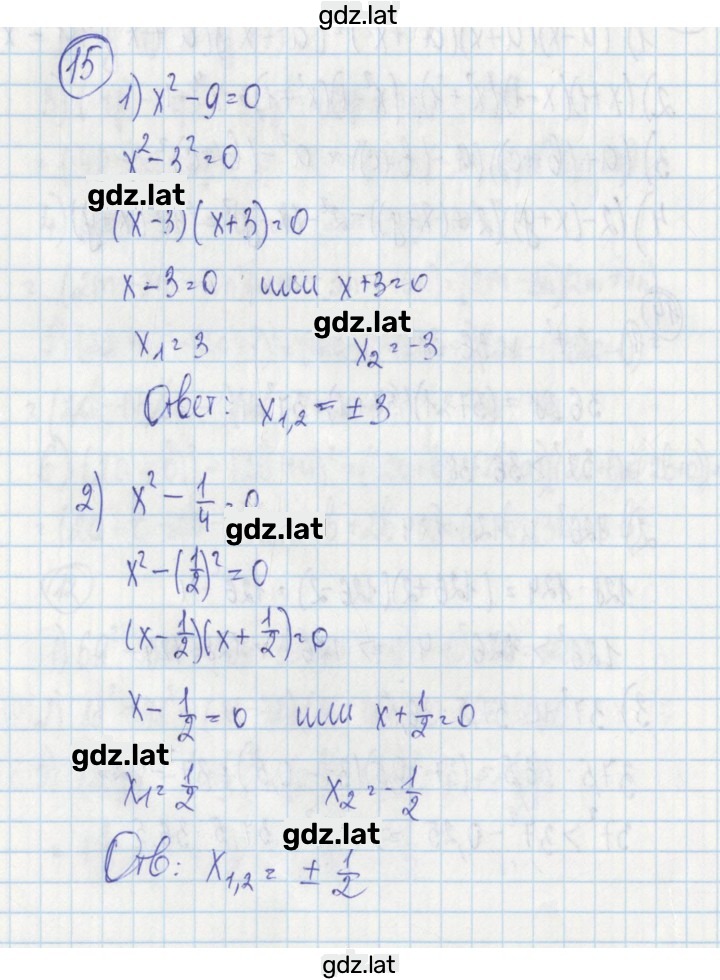 gdz.lat
15
1) x² - 9 = 0
x² - 3² = 0
gdz.lat
(x - 3)(x + 3) = 0
x - 3 = 0 или x + 3 = 0
gdz.lat
x₁ = 3 x₂ = -3
Ответ: x₁,₂ = ± 3
2) x² - 1/4 = 0
gdz.lat
x² - (1/2)² = 0
(x - 1/2)(x + 1/2) = 0
x - 1/2 = 0 или x + 1/2 = 0
gdz.lat
x₁ = 1/2 x₂ = - 1/2
gdz.lat
Отв: x₁,₂ = ± 1/2
gdz.lat